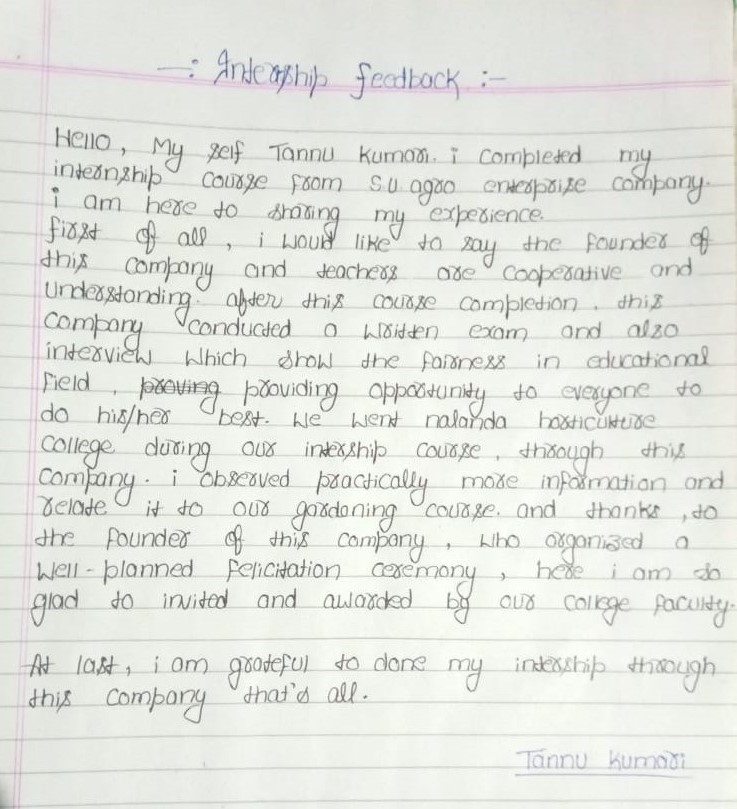 —: Internship feedback :-
Hello, My self Tannu Kumari. i completed my
internship course from S.U agro enterprise company.
i am here to sharing my experience.
first of all, i would like to say the founder of
this company and teachers are cooperative and
understanding. after this course completion. this
company conducted a written exam and also
interview which show the fairness in educational
field, proving providing opportunity to everyone to
do his/her best. We went nalanda horticulture
college during our intership course, through this
company. i observed practically more information and
relate it to our gardaning course. and thanks, to
the founder of this company, who organised a
well-planned felicitation ceremony, here i am so
glad to invited and awarded by our college faculty.
At last, i am grateful to done my intership through
this company that's all.
Tannu Kumari